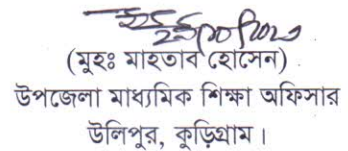 (মুহঃ মাহতাব হোসেন)
উপজেলা মাধ্যমিক শিক্ষা অফিসার
উলিপুর, কুড়িগ্রাম।